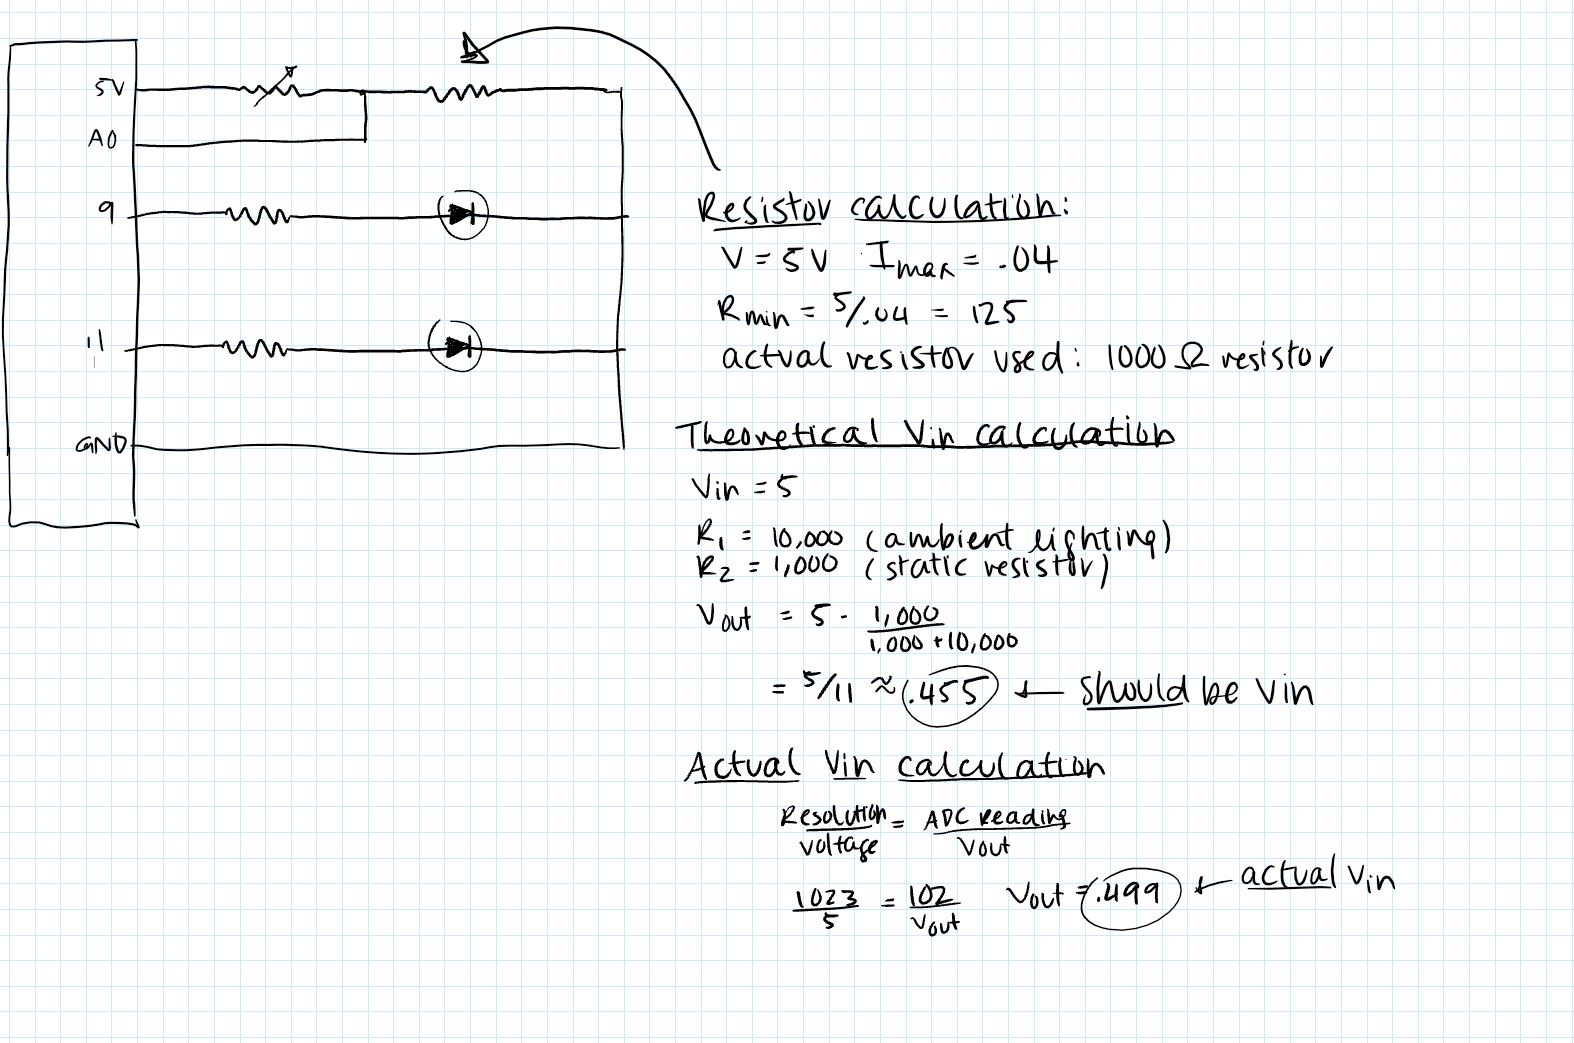 5V
A0
9
11
GND
Resistor calculation:
V = 5V Imax = .04
Rmin = 5/.04 = 125
actual resistor used: 1000 Ω resistor
Theoretical Vin calculation
Vin = 5
R1 = 10,000 (ambient lighting)
R2 = 1,000 (static resistor)
Vout = 5 · 1,000
1,000 + 10,000
= 5/11 ≈ .455 ← should be Vin
Actual Vin calculation
Resolution = ADC reading
voltage Vout
1023 = 102 Vout = .499 ← actual Vin
5 Vout